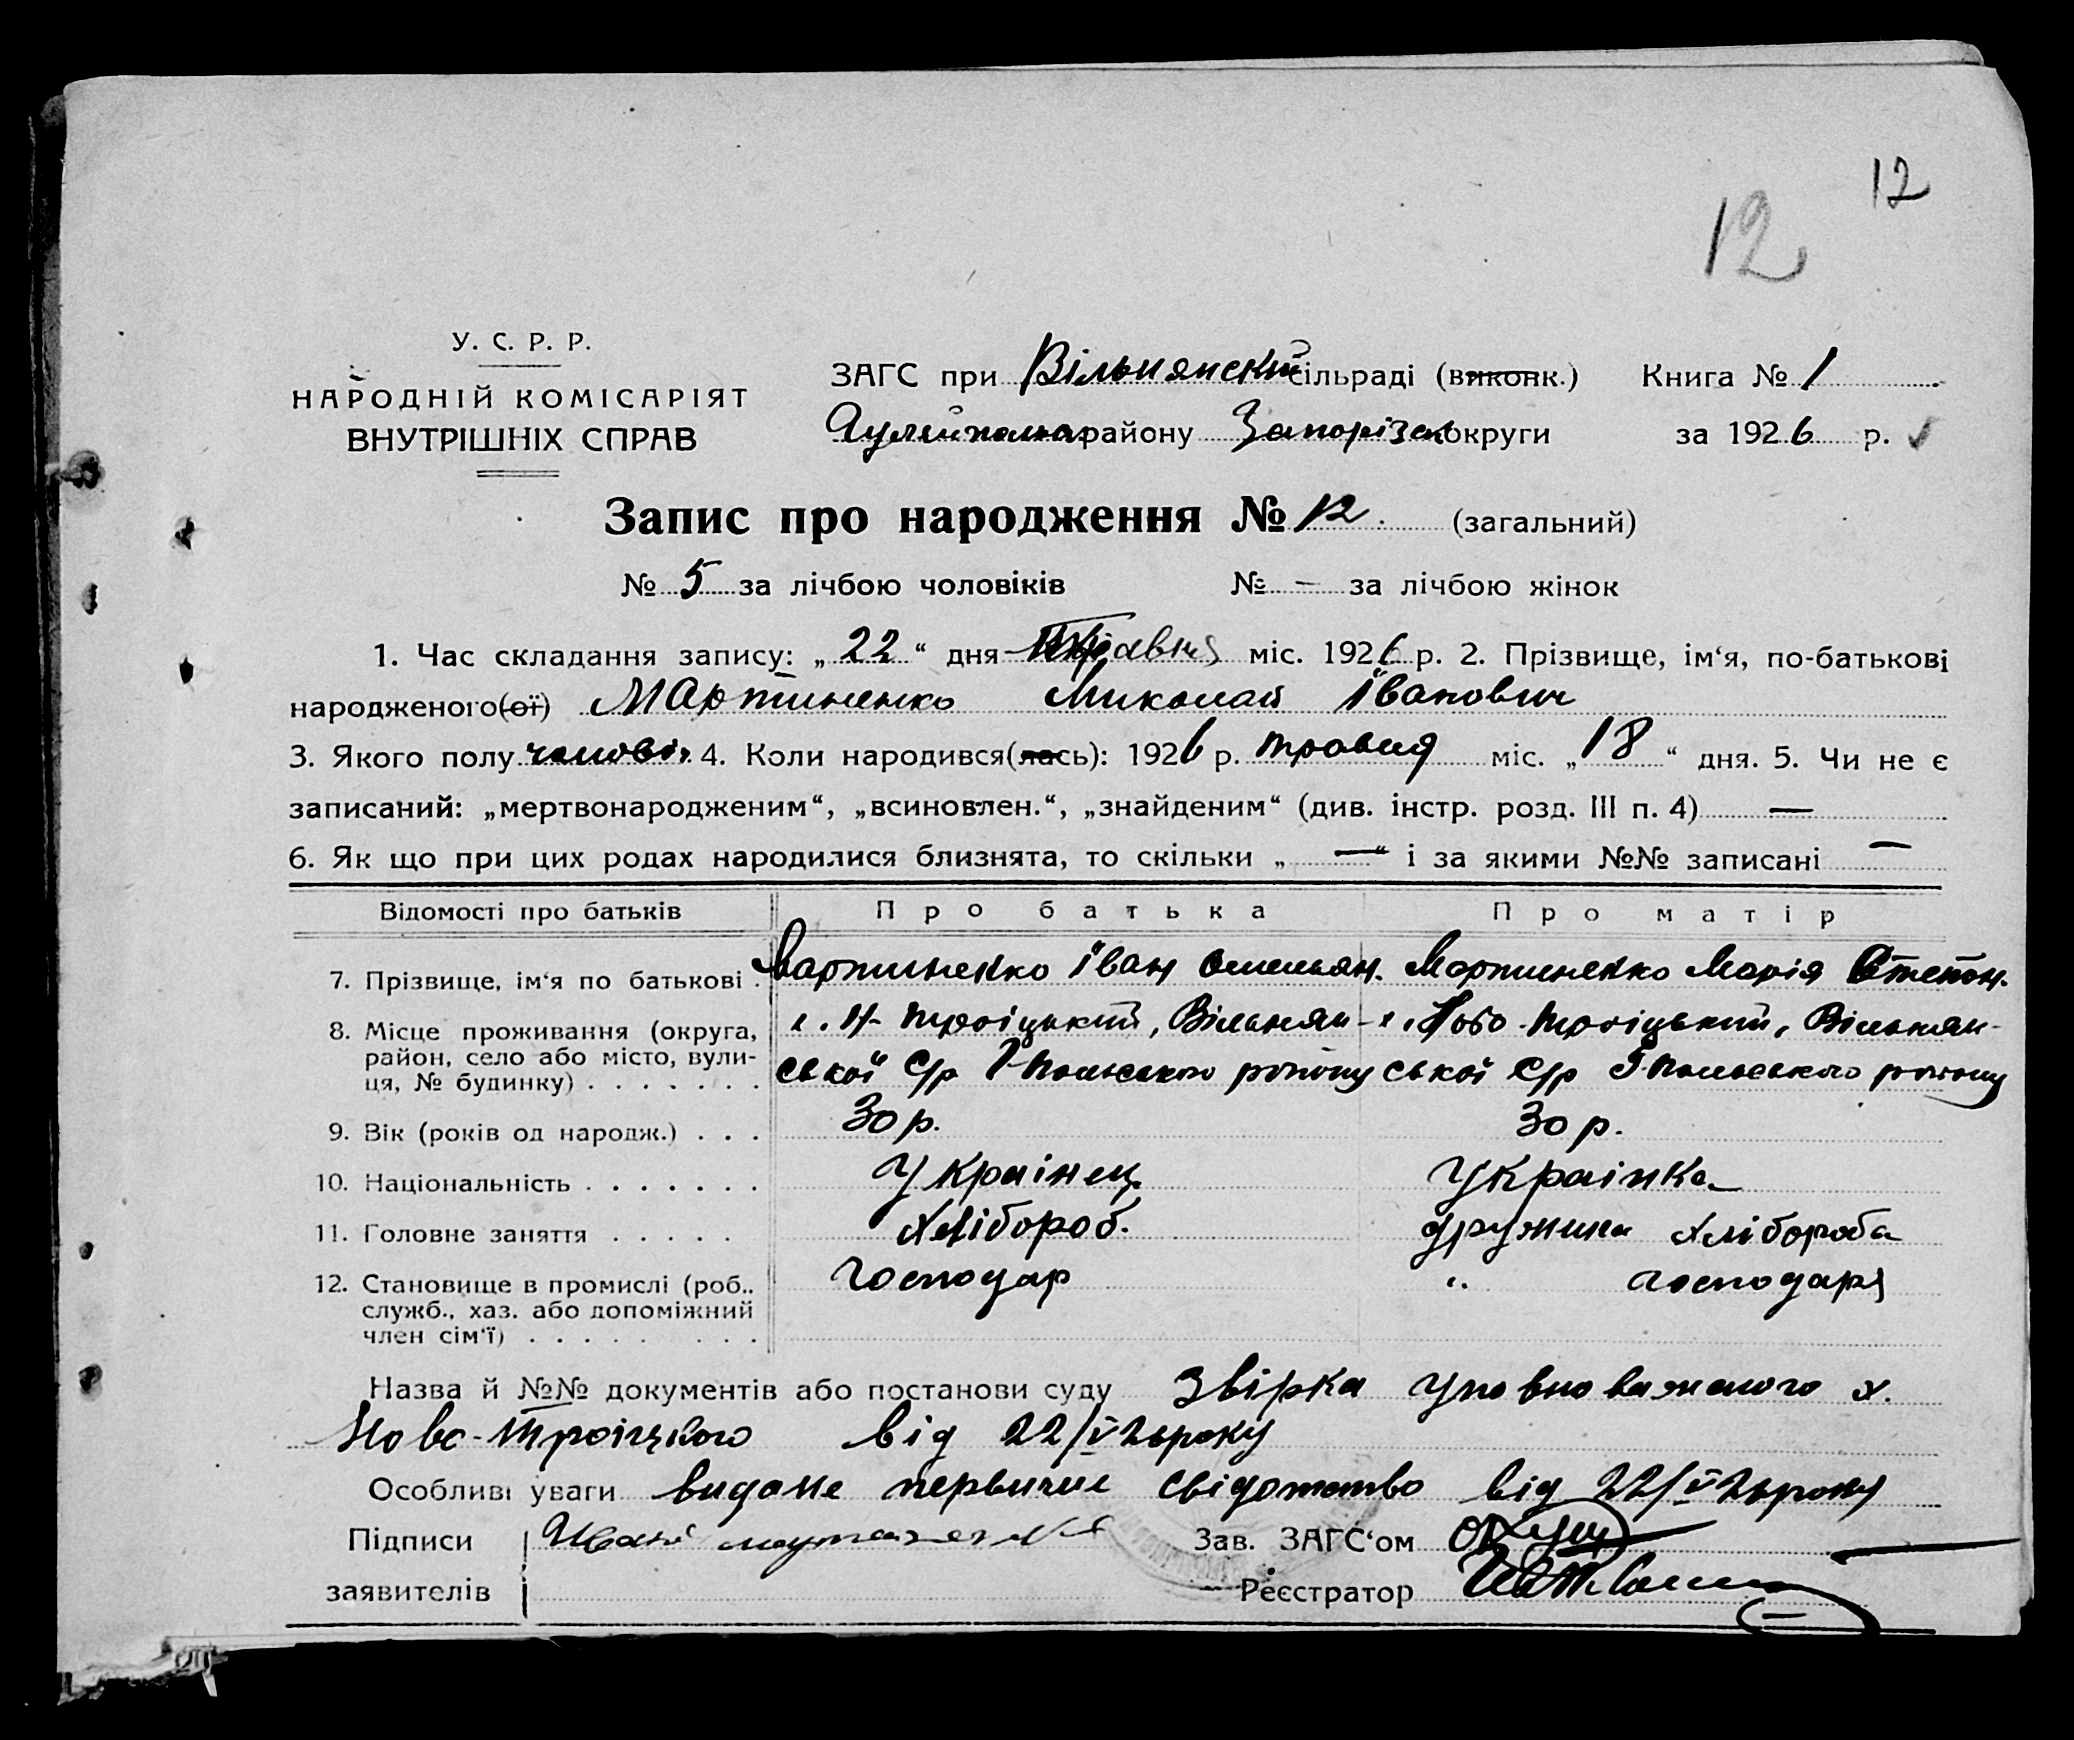 12
12
У. С. Р. Р.
НАРОДНІЙ КОМІСАРІЯТ
ВНУТРІШНІХ СПРАВ
ЗАГС при Вільнянскій сільраді (виконк.) Книга № 1
Гуляйпольс району Запорізьк округи за 1926 р.
Запис про народження № 12 (загальний)
№ 5 за лічбою чоловіків № — за лічбою жінок
1. Час складання запису: „22“ дня травня міс. 1926 р. 2. Прізвище, ім‘я, по-батькові
народженого(ої) Мартиненко Миколай Іванович
3. Якого полу чоловіч 4. Коли народився(лась): 1926 р. травня міс. „18“ дня. 5. Чи не є
записаний: „мертвонародженим“, „всиновлен.“, „знайденим“ (див. інстр. розд. III п. 4) —
6. Як що при цих родах народилися близнята, то скільки „—“ і за якими №№ записані —
Відомості про батьків Про батька Про матір
7. Прізвище, ім‘я по батькові Мартиненко Іван Омельян. Мартиненко Марія Степан.
8. Місце проживання (округа, район, село або місто, вулиця, № будинку) х. Н-Троіцький, Вільнянської С/р Г-Польського району х. Ново-Троіцький, Вільнянської С/р Г-Польського району
9. Вік (років од народж.) 30 р. 30 р.
10. Національність Украінец Украінка
11. Головне заняття Хлібороб. дружина Хлібороба
12. Становище в промислі (роб., служб., хаз. або допоміжний член сім‘ї) Господар " господаря
Назва й №№ документів або постанови суду Звірка уповноваженого х.
Ново-Троіцького від 22/V 26 року
Особливі уваги видане первичне свідотство від 22/V 26 року
Підписи Зав. ЗАГС‘ом
заявителів Реєстратор